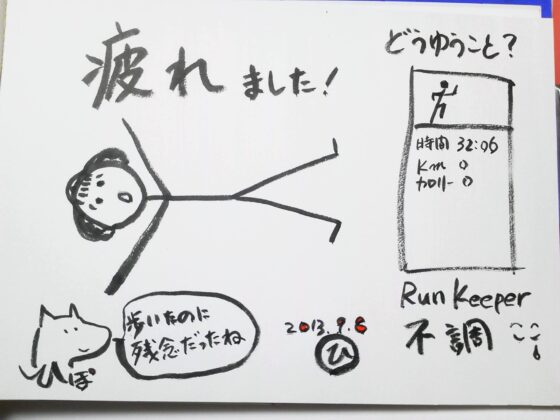 疲れました!
どうゆうこと?
時間 32:06
Km 0
カロリー 0
Run Keeper
不調
歩いたのに
残念だったね
ひぽ
2013.9.6
ひ